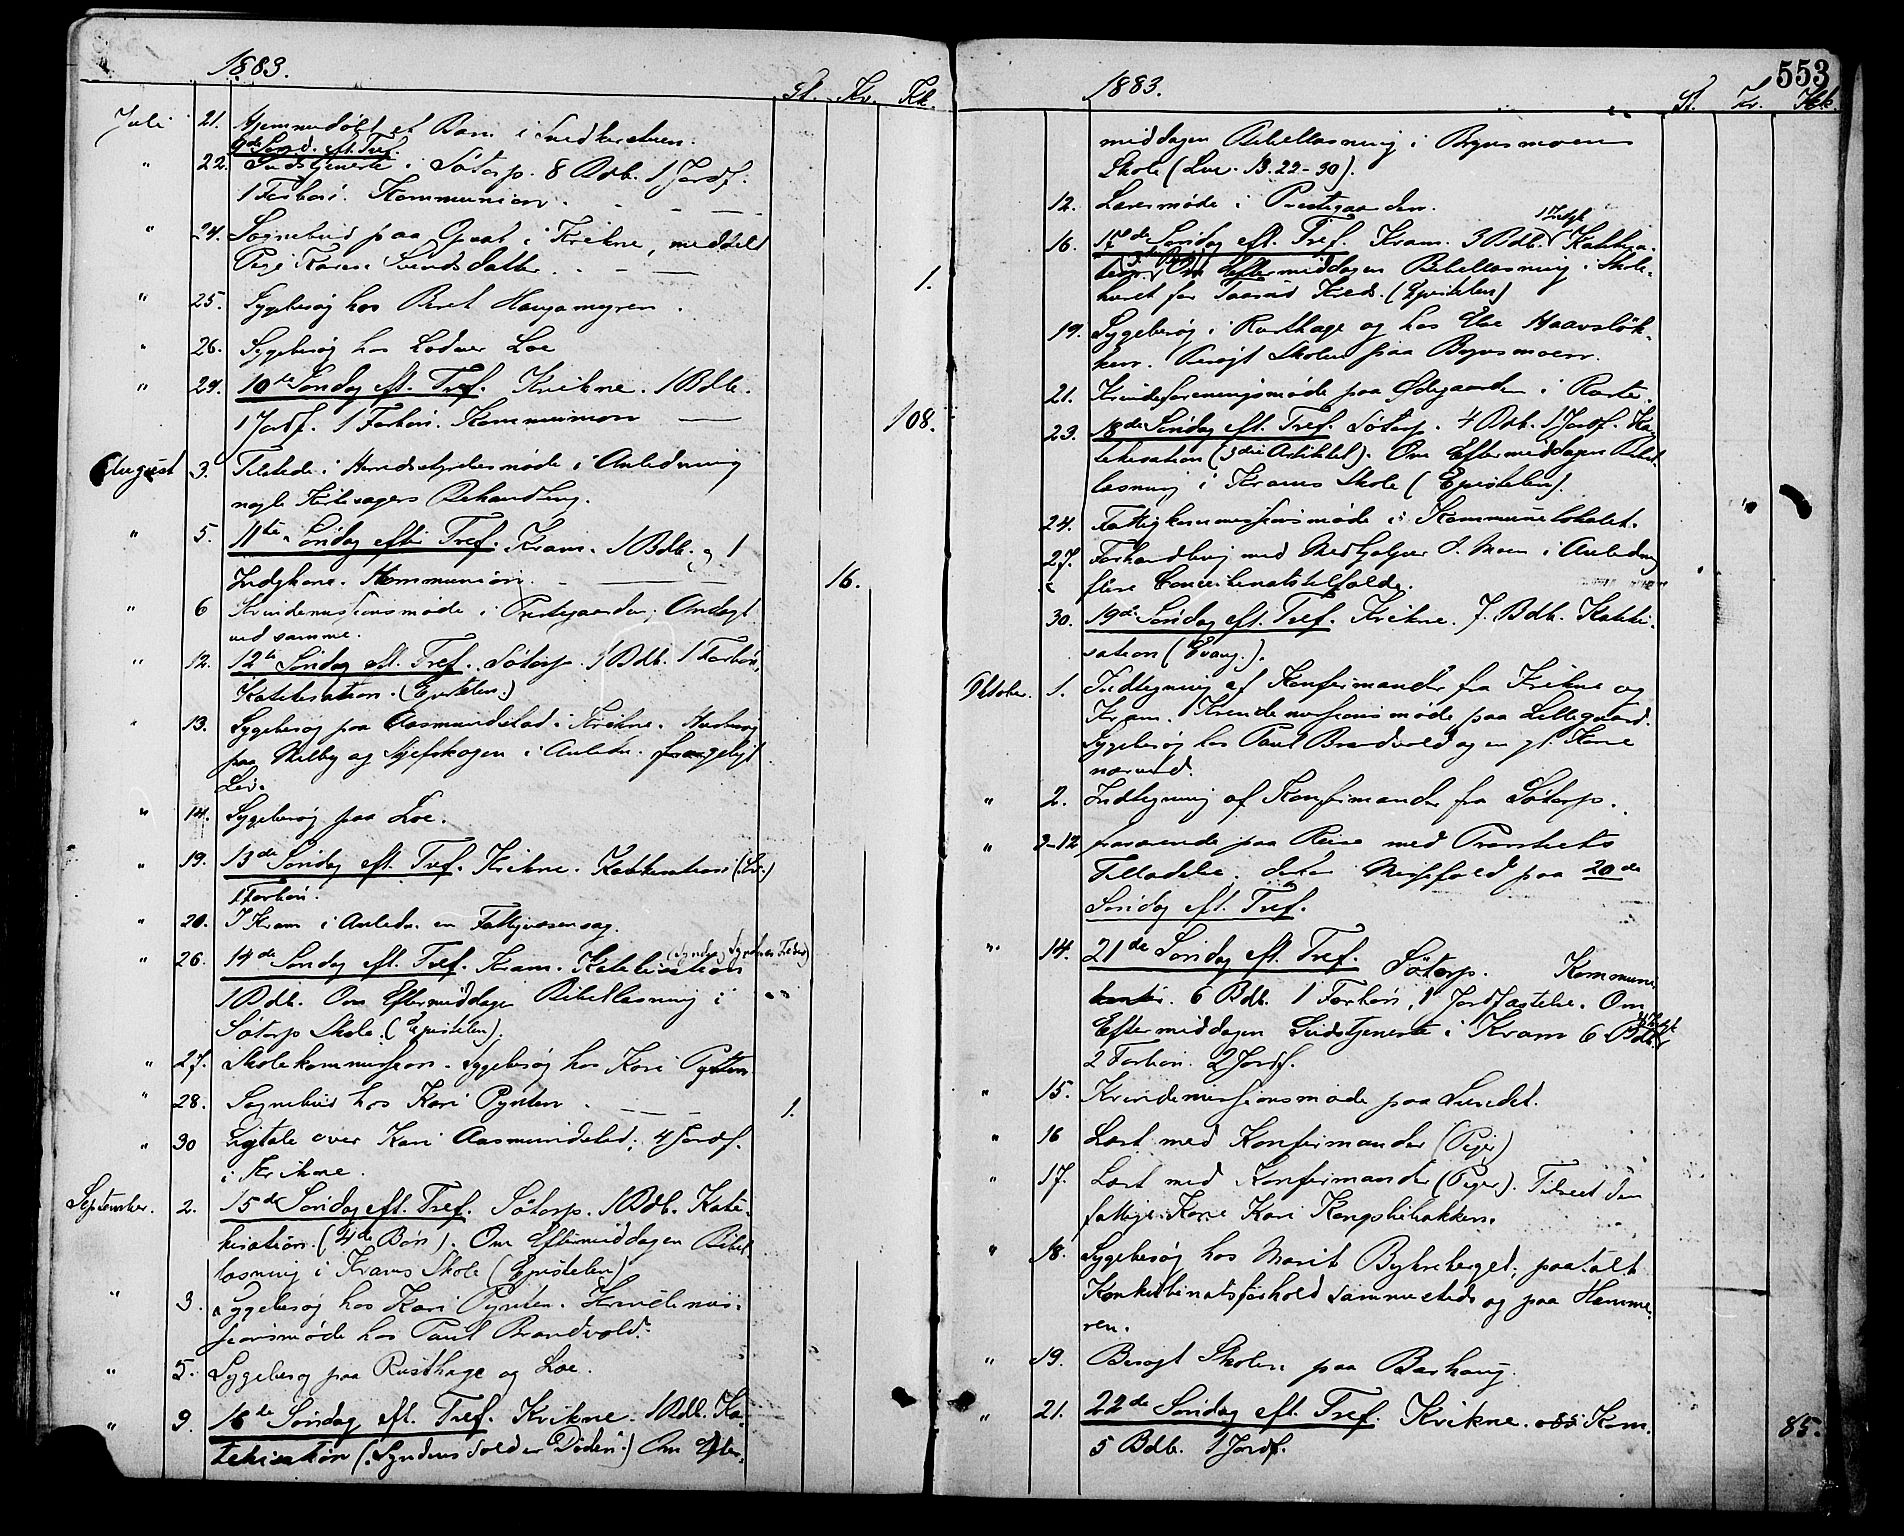 1883.
St. Kv. Kk.
Juli 21. Hjemmedøbt et Barn i
9de Sønd. eft. Tref.
" 22. Gudstjeneste i Sötorp. 8 Bdb. 1 Jordf.
1 Forhör. Kommunion.
" 24. Sognebud paa i Kvikne, meddelt
Pige Karen Svendsdatter. 1.
" 25. Sygebesög hos Beret Haugamyren.
" 26. Sygebesög hos Loe
" 29. 10de Söndag eft. Tref. Kvikne. 1 Bdb.
1 Jordf. 1 Forhör. Kommunion 108.
August 3. Tilstede i Herredsstyrelsesmöde i Anledning
nogle Kirkesagers Behandling.
" 5. 11te Söndag efter Tref. Kram. 1 Bdb. og 1
Indgkone. Kommunion. 16.
" 6 Kvindemissionsmöde i Prestegaarden; Andagt
ved samme.
" 12. 12te Söndag eft. Tref. Sötorp. 1 Bdb. 1 Forhör,
Katekisation. (Epistelen.)
" 13. Sygebesög paa Aasmundstad i Kvikne. Husbesög
paa Melby og i Anledn.
Liv.
" 14. Sygebesög paa Loe.
" 19. 13de Söndag eft. Tref. Kvikne. Katekisation
1 Forhör.
" 20. I Kram i Anledn. en Fattigvæsensag.
" 26. 14de Söndag eft. Tref. Kram. Katekisation (Synd og Syndens )
1 Bdb. Om Eftermiddagen Bibellæsning i
Sötorp Skole. (Epistelen).
" 27. Skolekommission. Sygebesög hos Kari Pynten
" 28. Sognebud hos Kari Pynten 1.
" 30 Ligtale over Kari Aasmundstad; 4 Jordf.
i Kvikne.
September. 2. 15de Söndag eft. Tref. Sötorp. 1 Bdb. Kate-
kisation. (4de Bön). Om Eftermiddagen Bibel-
læsning i Krams Skole (Epistelen)
" 3. Sygebesög hos Kari Pynten. Kvindemis-
sionsmöde hos Paul Brandvold.
" 5. Sygebesög paa Rusthage og Loe.
" 9. 16de Söndag eft. Tref. Kvikne. 1 Bdb. Ka-
tekisation (Syndens Sold er Döden.) Om Efter-
553
1883.
St. Kv. Kk.
middagen Bibellæsning i Byresmoens
Skole (Luc. 13. 22-30).
12. Læsemöde i Prestegaarden.
16. 17de Söndag eft. Tref. Kram. 3 Bdb. 1 Indgk Katteke-
Om Eftermiddagen Bibellæsning i Skole-
huset for Kreds. (Epistelen)
19. Sygebesög i Rusthage og hos Else Haavslök-
ken. Besögt Skolen paa Byresmoen.
21. Kvindeforeningsmöde paa Ödegaarden i
23. 18de Söndag eft. Tref. Sötorp. 4 Bdb. 1 Jordf. Ka-
tekisation (3die Artikkel). Om Eftermiddagen Bibel-
læsning i Krams Skole (Epistelen).
24. Fattigkommissionsmöde i Kommunelokalet.
27. Forhandling med Medhjælper O. Moen i Anledning
flere Concubinatstilfælde.
30. 19de Söndag eft. Tref. Kvikne. 7. Bdb. Kateki-
sation (Evang.).
Oktober. 1. Indtegning af Konfirmander fra Kvikne og
Kram. Kvindemissionsmöde paa Lillegaard.
Sygebesög hos Paul Brandvold og en gl. Kone
nærved.
" 2. Indtegning af Konfirmander fra Sötorp.
" 3-12 fraværende paa Reise med Provstiets
Tilladelse. Messefald paa 20de
Söndag eft. Tref.
" 14. 21de Söndag eft. Tref. Sötorp. Kommuni-
kanter. 6 Bdb. 1 Forhör, 1 Jordfæstelse. Om
Eftermiddagen Gudstjeneste i Kram 6 Bdb.
2 Forhör. 2 Jordf.
" 15. Kvindemissionsmöde paa Sundet.
" 16 Læst med Konfirmander (Piger)
" 17. Læst med Konfirmander (Piger). Tilseet den
fattige Kone Kari Kongslibakken.
" 18. Sygebesög hos Marit paatalt
Konkubinatsforhold sammesteds og paa Hamme-
ren.
" 19. Besögt Skolen paa Barhaug.
" 21. 22de Söndag eft. Tref. Kvikne. Kom.
5 Bdb. 1 Jordf. 85.